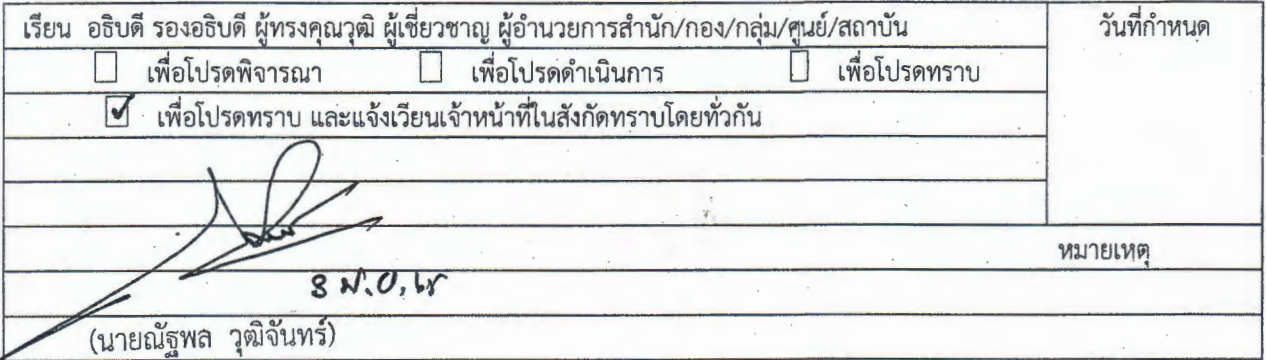 เรียน อธิบดี รองอธิบดี ผู้ทรงคุณวุฒิ ผู้เชี่ยวชาญ ผู้อำนวยการสำนัก/กอง/กลุ่ม/ศูนย์/สถาบัน วันที่กำหนด
เพื่อโปรดพิจารณา เพื่อโปรดดำเนินการ เพื่อโปรดทราบ
เพื่อโปรดทราบ และแจ้งเวียนเจ้าหน้าที่ในสังกัดทราบโดยทั่วกัน
หมายเหตุ
(นายณัฐพล วุฒิจันทร์)